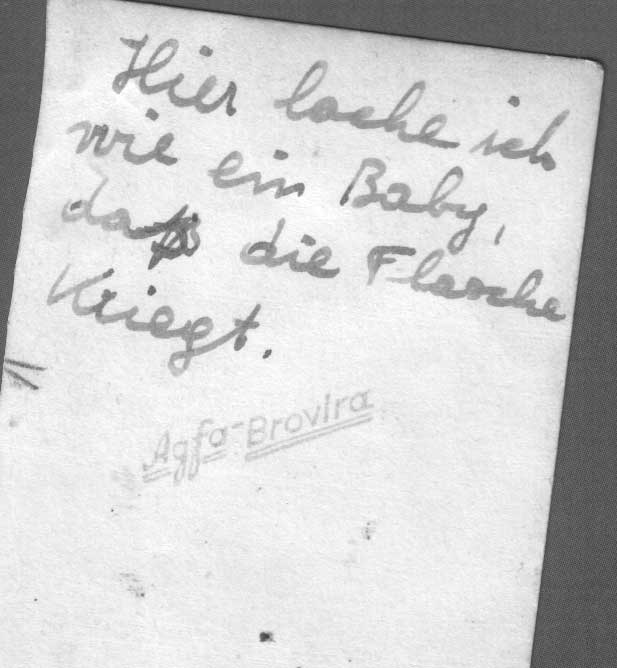 Hier lache ich
wie ein Baby,
das die Flasche
kriegt.
Agfa-Brovira